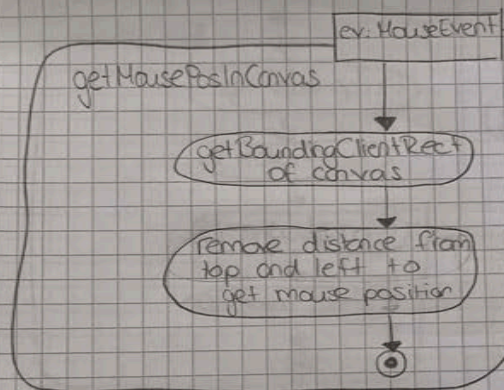 ev: MouseEvent
getMousePosInCanvas
getBoundingClientRect
of canvas
remove distance from
top and left to
get mouse position